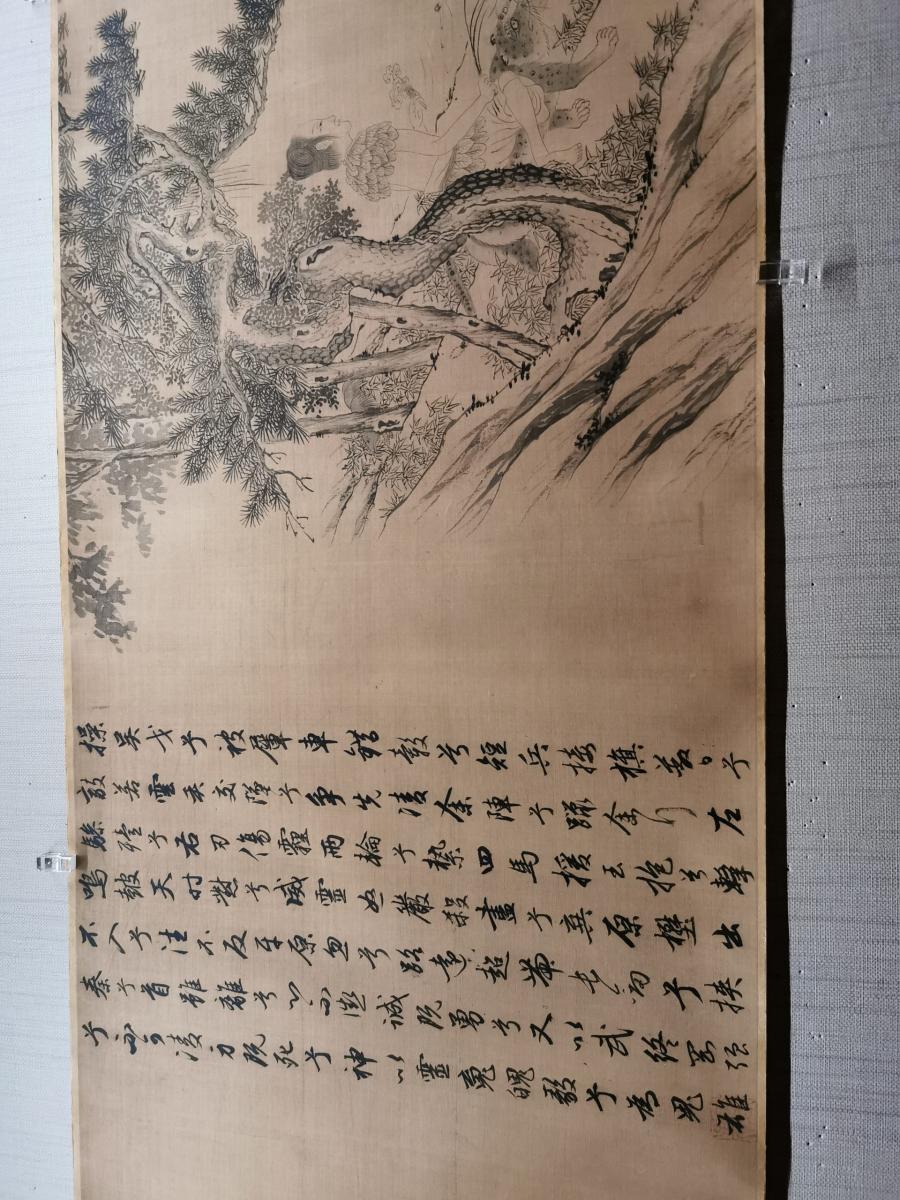 操吳戈兮被犀車錯轂兮短兵接旗蔽日兮
敵若雲矢交墜兮爭先凌余陣兮躐余行左
驂殪兮右刃傷霾兩輪兮縶四馬援玉枹兮擊
鳴鼓天時懟兮威靈怒嚴殺盡兮棄原壄出
不入兮往不反平原忽兮路遠超帶長劍兮挾
秦兮首雖離兮心不懲誠既勇兮又以武終剛強
兮不可凌身既死兮神以靈魂魄毅兮為鬼雄